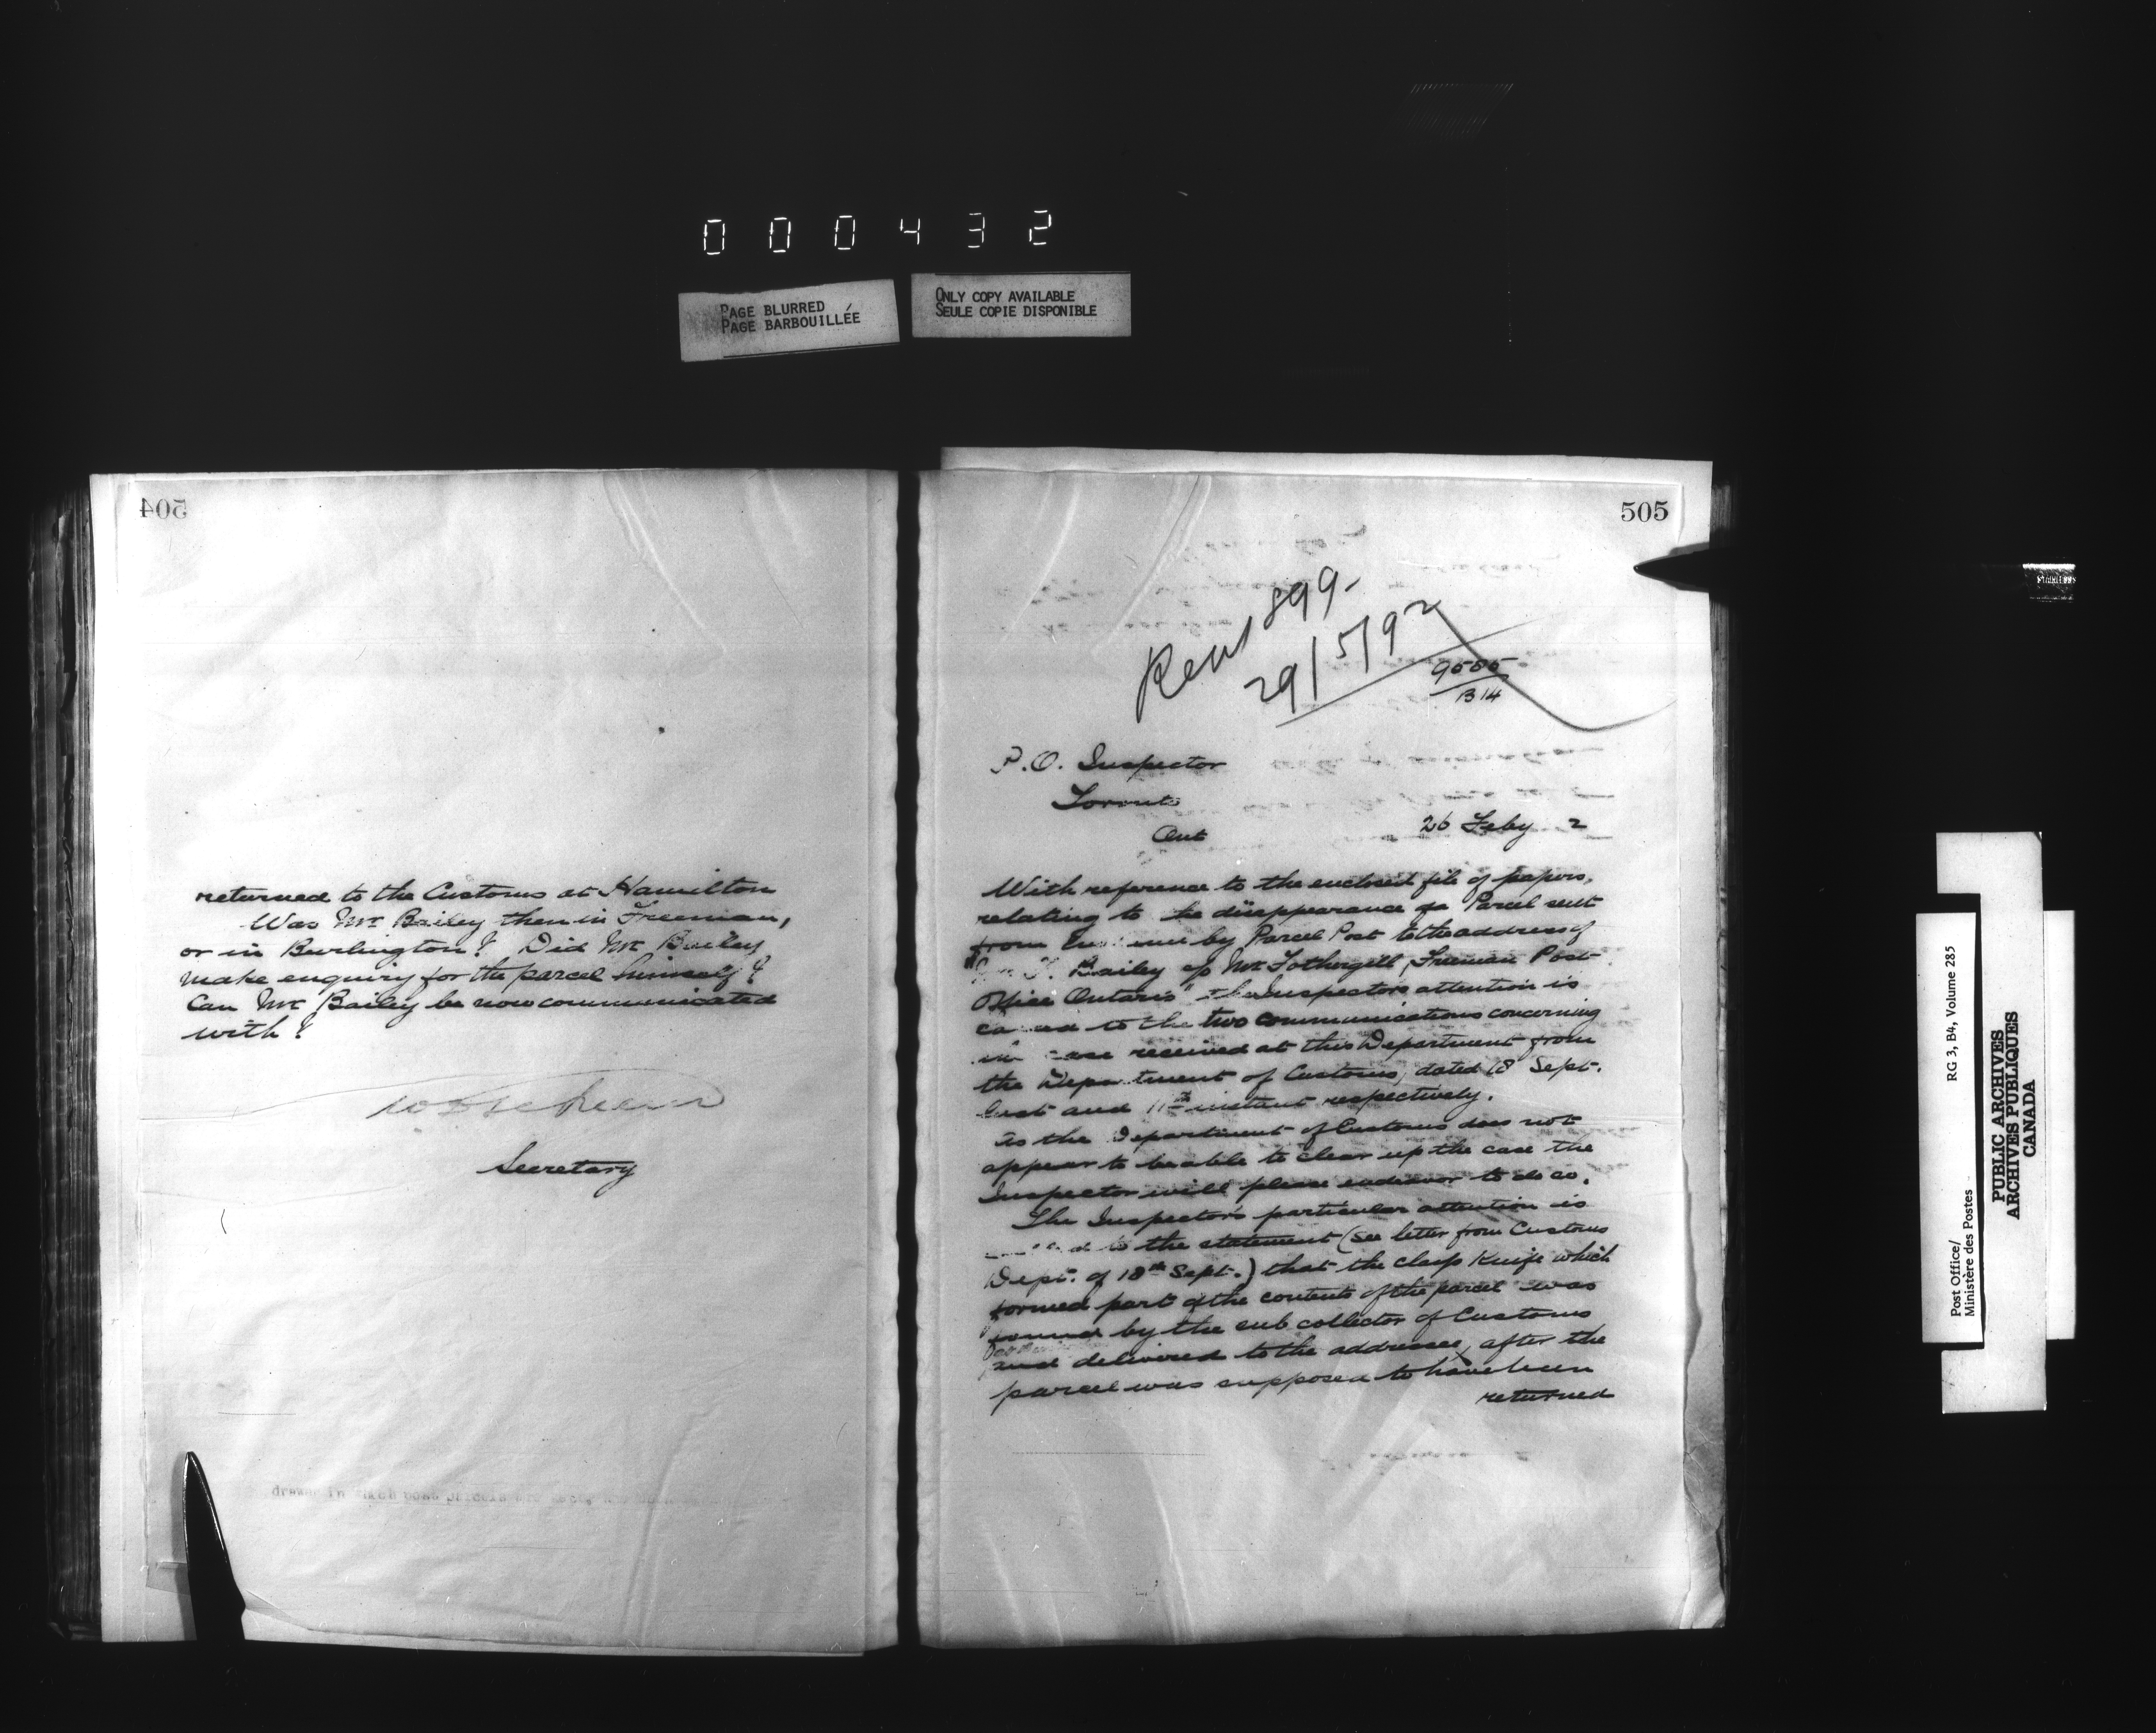 000432
PAGE BLURRED
PAGE BARBOUILLÉE
ONLY COPY AVAILABLE
SEULE COPIE DISPONIBLE
504
returned to the Customs at Hamilton
Was Mr Bailey then in Freeman,
or in Burlington? Did Mr Bailey
make enquiry for the parcel himself?
Can Mr Bailey be now communicated
with?
Secretary
505
899-
29/5/92
9505
B14
P.O. Inspector
Toronto
Ont
26 Feby 2
With reference to the enclosed file of papers,
relating to the disappearance of a Parcel sent
from by Parcel Post to the address of
Bailey c/o Mr Fothergill, Freeman Post
Office Ontario" the Inspector's attention is
called to the two communications concerning
case received at this Department from
the Department of Customs, dated 18 Sept.
last and 11th instant respectively.
As the Department of Customs does not
appear to be able to clear up the case the
Inspector will please endeavor to do so.
The Inspector's particular attention is
called to the statement (see letter from Customs
Dept. of 18th Sept.) that the clasp knife which
formed part of the contents of the parcel was
found by the sub collector of Customs
and delivered to the addressee, after the
parcel was supposed to have been
returned
Post Office/
Ministère des Postes
RG 3, B4, Volume 285
PUBLIC ARCHIVES
ARCHIVES PUBLIQUES
CANADA